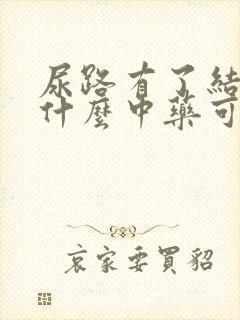 尿路有了結
什麼中藥可
哀家要買貂